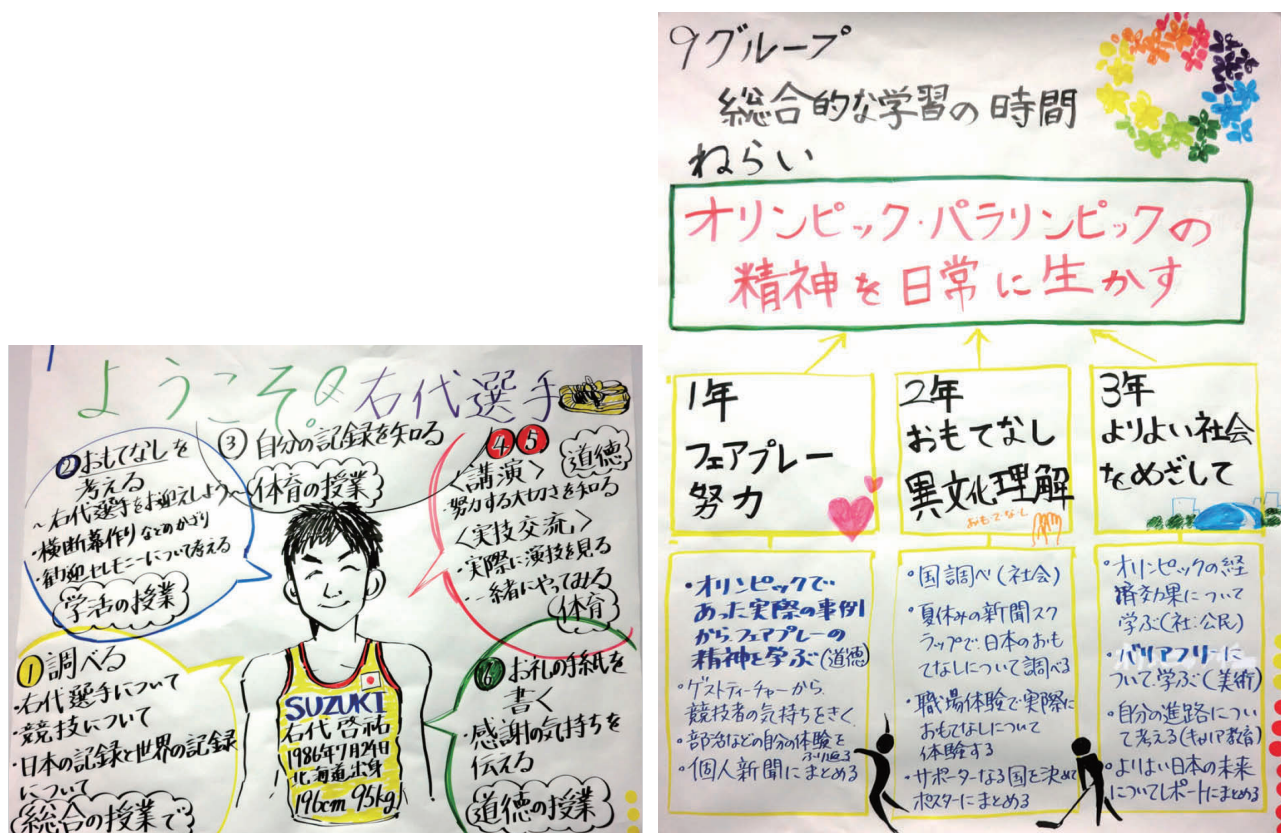 ようこそ 右代選手
②おもてなしを
考える
～右代選手をお迎えしよう～
・横断幕作りなどのかざり
・歓迎セレモニーについて考える
学活の授業
③自分の記録を知る
体育の授業
④⑤
道徳
〈講演〉
・努力する大切さを知る
〈実技交流〉
・実際に演技を見る
・一緒にやってみる
体育
①調べる
・右代選手について
・競技について
・日本の記録と世界の記録
について
総合の授業で
SUZUKI
右代啓祐
1986年7月24日
北海道出身
196cm 95kg
⑥お礼の手紙を
書く
・感謝の気持ちを
伝える
道徳の授業
9グループ
総合的な学習の時間
ねらい
オリンピック・パラリンピックの
精神を日常に生かす
1年
フェアプレー
努力
・オリンピックで
あった実際の事例
からフェアプレーの
精神を学ぶ(道徳)
・ゲストティーチャーから
競技者の気持ちをきく
・部活などの自分の体験を
ふり返る
・個人新聞にまとめる
2年
おもてなし
異文化理解
おもてなし
・国調べ(社会)
・夏休みの新聞スク
ラップで、日本のおも
てなしについて調べる
・職場体験で実際に
おもてなしについて
体験する
・サポーターなる国を決めて
ポスターにまとめる
3年
よりよい社会
をめざして
・オリンピックの経
済効果について
学ぶ(社:公民)
・バリアフリーに
ついて学ぶ(美術)
・自分の進路につい
て考える(キャリア教育)
・よりよい日本の未来
についてレポートにまとめる